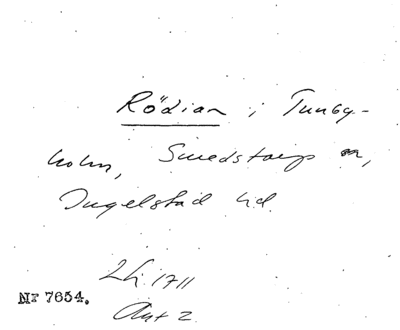 Rödian i Tunby-
holm, Smedstorps sn,
Ingelstad hd.
Lhr 1711
Akt 2
Nr 7654.